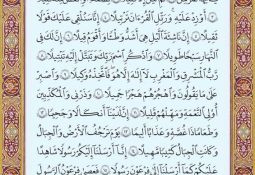 أَوْ زِدْ عَلَيْهِ وَرَتِّلِ الْقُرْءَانَ تَرْتِيلًا ۝ إِنَّا سَنُلْقِي عَلَيْكَ قَوْلًا
ثَقِيلًا ۝ إِنَّ نَاشِئَةَ الَّيْلِ هِيَ أَشَدُّ وَطْـًٔا وَأَقْوَمُ قِيلًا ۝ إِنَّ لَكَ فِي
النَّهَارِ سَبْحًا طَوِيلًا ۝ وَاذْكُرِ اسْمَ رَبِّكَ وَتَبَتَّلْ إِلَيْهِ تَبْتِيلًا ۝
رَّبُّ الْمَشْرِقِ وَالْمَغْرِبِ لَا إِلَٰهَ إِلَّا هُوَ فَاتَّخِذْهُ وَكِيلًا ۝ وَاصْبِرْ
عَلَىٰ مَا يَقُولُونَ وَاهْجُرْهُمْ هَجْرًا جَمِيلًا ۝ وَذَرْنِي وَالْمُكَذِّبِينَ
أُولِي النَّعْمَةِ وَمَهِّلْهُمْ قَلِيلًا ۝ إِنَّ لَدَيْنَا أَنكَالًا وَجَحِيمًا ۝
وَطَعَامًا ذَا غُصَّةٍ وَعَذَابًا أَلِيمًا ۝ يَوْمَ تَرْجُفُ الْأَرْضُ وَالْجِبَالُ
وَكَانَتِ الْجِبَالُ كَثِيبًا مَّهِيلًا ۝ إِنَّا أَرْسَلْنَا إِلَيْكُمْ رَسُولًا شَاهِدًا
عَلَيْكُمْ كَمَا أَرْسَلْنَا إِلَىٰ فِرْعَوْنَ رَسُولًا ۝ فَعَصَىٰ فِرْعَوْنُ الرَّسُولَ